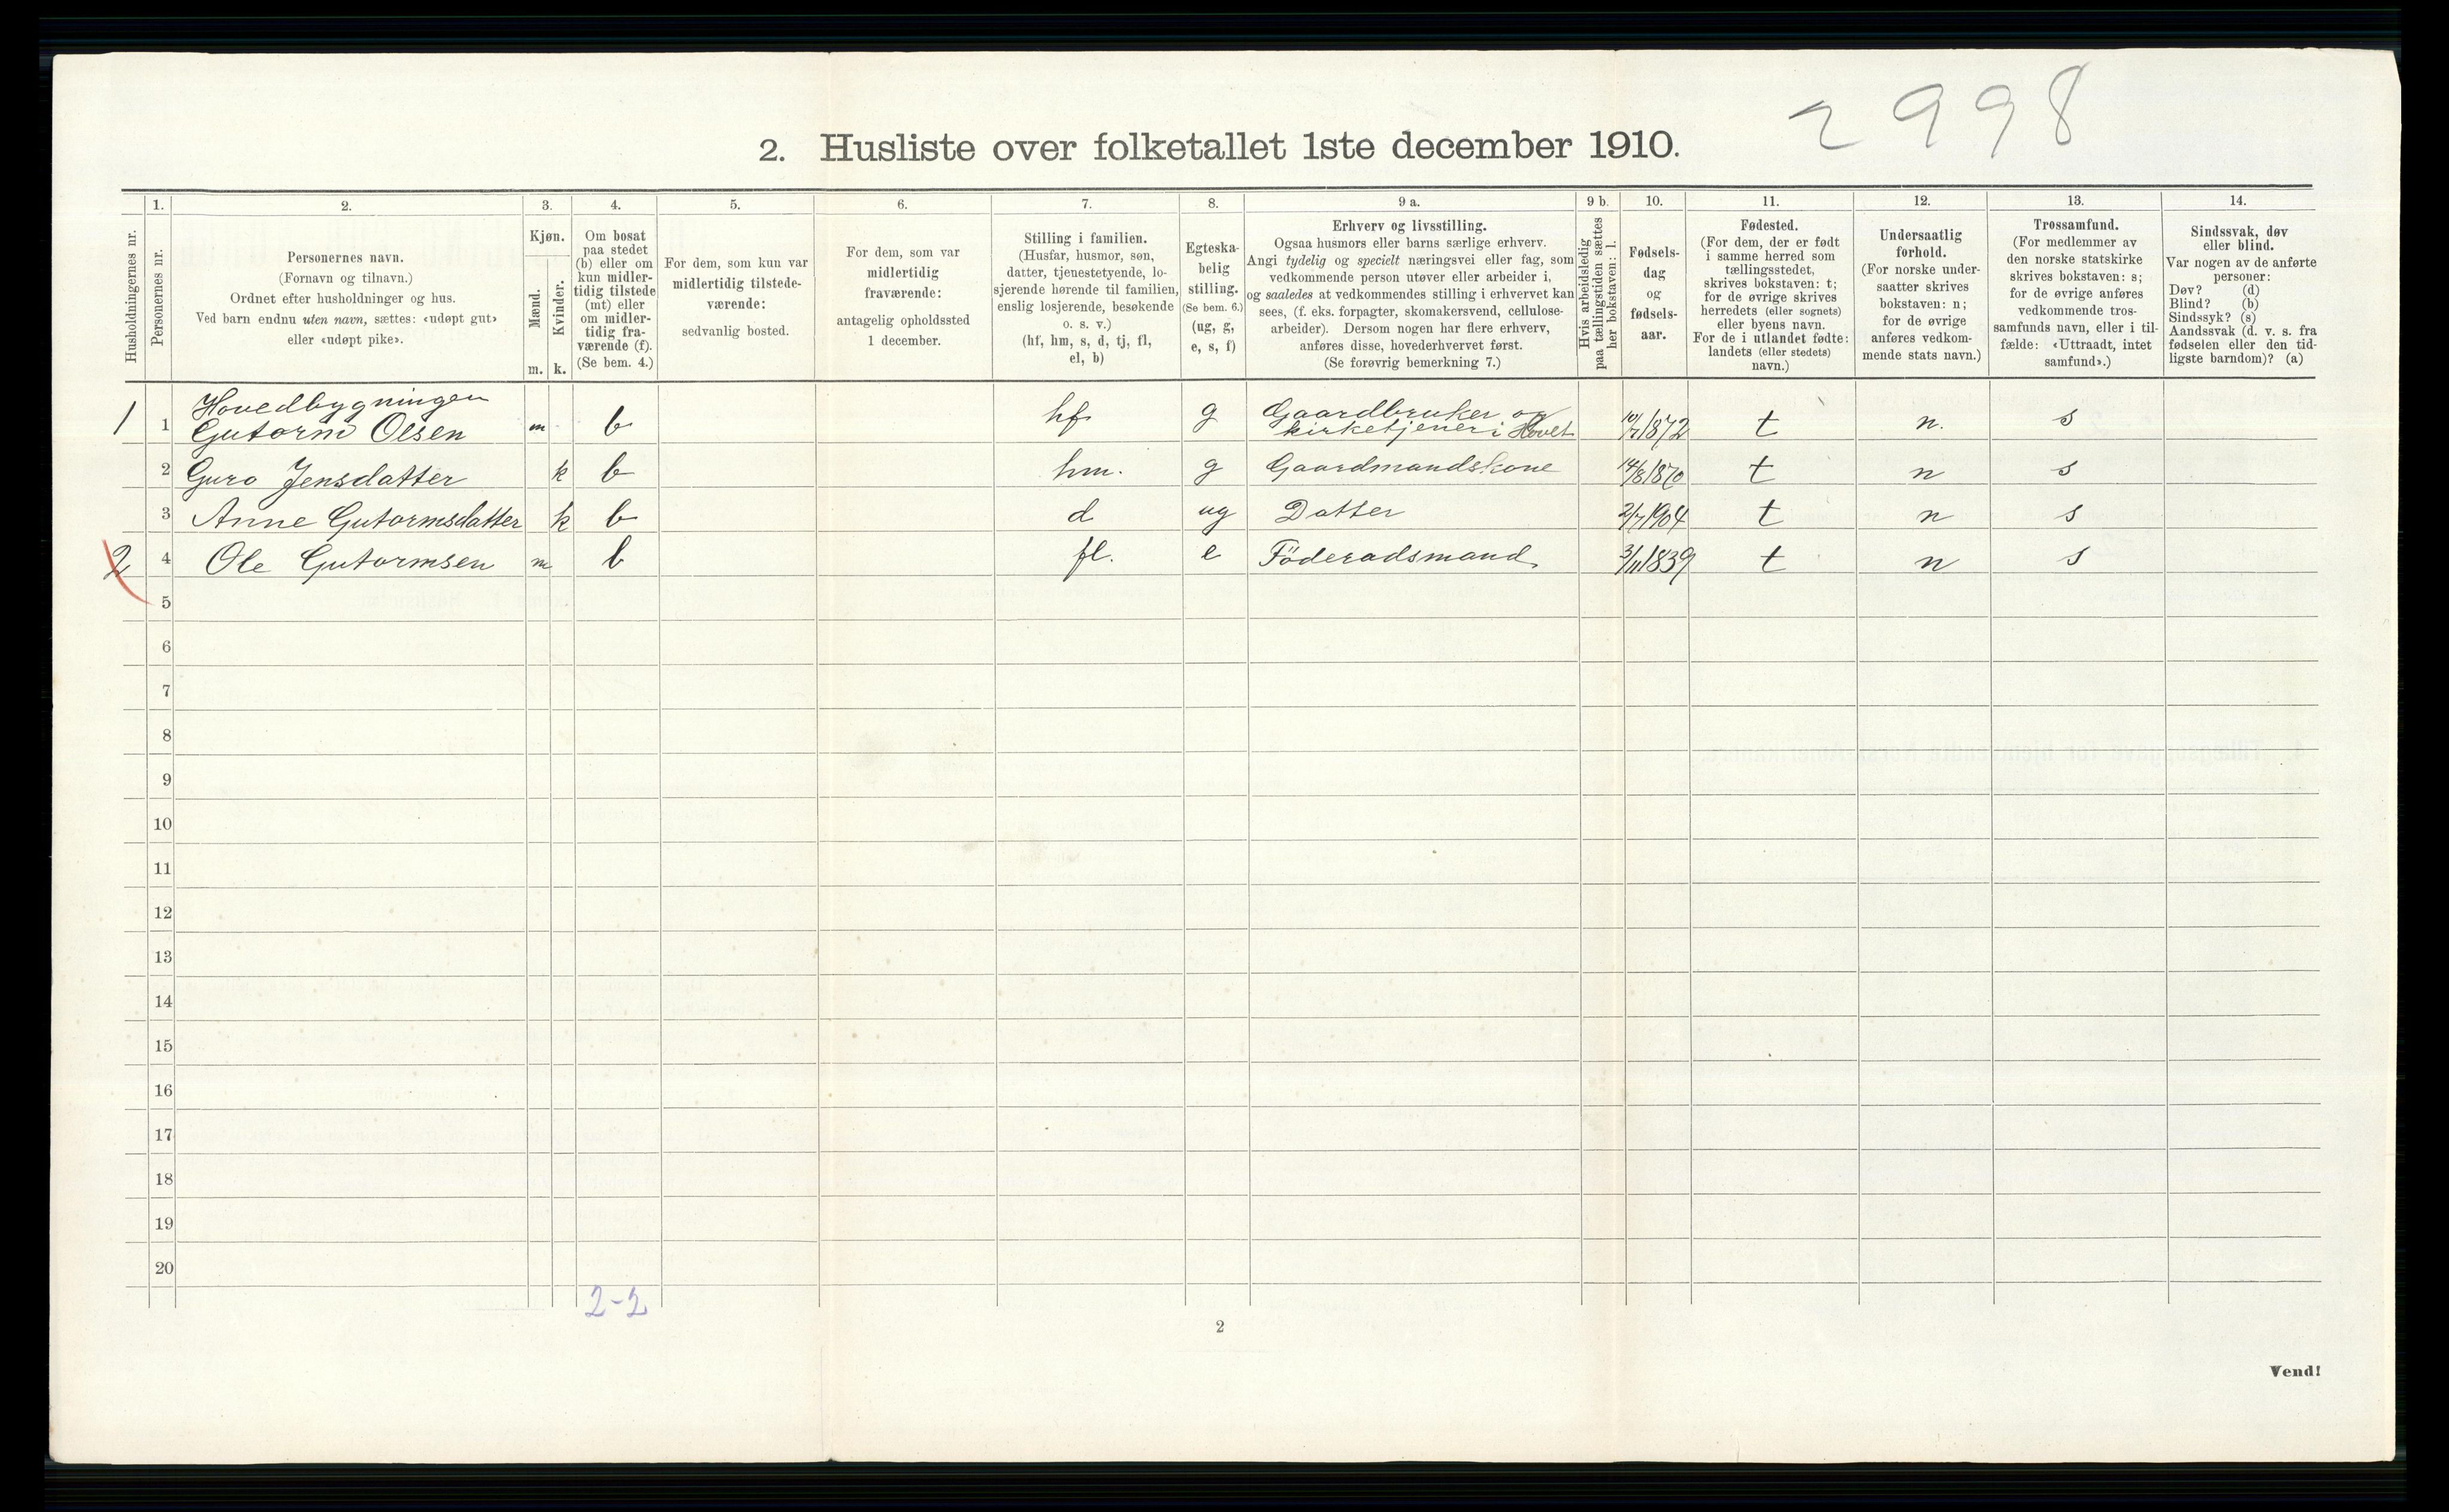 2998
2. Husliste over folketallet 1ste december 1910.
1. 2. 3. 4. 5. 6. 7. 8. 9 a. 9 b. 10. 11. 12. 13. 14.
Husholdningernes nr.
Personernes nr.
Personernes navn.
(Fornavn og tilnavn.)
Ordnet efter husholdninger og hus.
Ved barn endnu uten navn, sættes: «udøpt gut»
eller «udøpt pike».
Kjøn.
Mænd.
Kvinder.
m. k.
Om bosat
paa stedet
(b) eller om
kun midler-
tidig tilstede
(mt) eller
om midler-
tidig fra-
værende (f).
(Se bem. 4.)
For dem, som kun var
midlertidig tilstede-
værende:
sedvanlig bosted.
For dem, som var
midlertidig
fraværende:
antagelig opholdssted
1 december.
Stilling i familien.
(Husfar, husmor, søn,
datter, tjenestetyende, lo-
sjerende hørende til familien,
enslig losjerende, besøkende
o. s. v.)
(hf, hm, s, d, tj, fl,
el, b)
Egteska-
belig
stilling.
(Se bem. 6.)
(ug, g,
e, s, f)
Erhverv og livsstilling.
Ogsaa husmors eller barns særlige erhverv.
Angi tydelig og specielt næringsvei eller fag, som
vedkommende person utøver eller arbeider i,
og saaledes at vedkommendes stilling i erhvervet kan
sees, (f. eks. forpagter, skomakersvend, cellulose-
arbeider). Dersom nogen har flere erhverv,
anføres disse, hovederhvervet først.
(Se forøvrig bemerkning 7.)
Hvis arbeidsledig
paa tællingstiden sættes
her bokstaven: l.
Fødsels-
dag
og
fødsels-
aar.
Fødested.
(For dem, der er født
i samme herred som
tællingsstedet,
skrives bokstaven: t;
for de øvrige skrives
herredets (eller sognets)
eller byens navn.
For de i utlandet fødte:
landets (eller stedets)
navn.)
Undersaatlig
forhold.
(For norske under-
saatter skrives
bokstaven: n;
for de øvrige
anføres vedkom-
mende stats navn.)
Trossamfund.
(For medlemmer av
den norske statskirke
skrives bokstaven: s;
for de øvrige anføres
vedkommende tros-
samfunds navn, eller i til-
fælde: «Uttraadt, intet
samfund».)
Sindssvak, døv
eller blind.
Var nogen av de anførte
personer:
Døv? (d)
Blind? (b)
Sindssyk? (s)
Aandssvak (d. v. s. fra
fødselen eller den tid-
ligste barndom)? (a)
Hovedbygningen
1 1 Gutorm Olsen m b hf g Gaardbruker og kirketjener i Hovet 10/7 1872 t n. s
2 Guro Jensdatter k b hm. g Gaardmandskone 14/8 1870 t n s
3 Anne Gutormsdatter k b d ug Datter 2/7 1904 t n s
2 4 Ole Gutormsen m b fl. e Föderadsmand 3/11 1839 t n s
5
6
7
8
9
10
11
12
13
14
15
16
17
18
19
20
2-2
2
Vend!